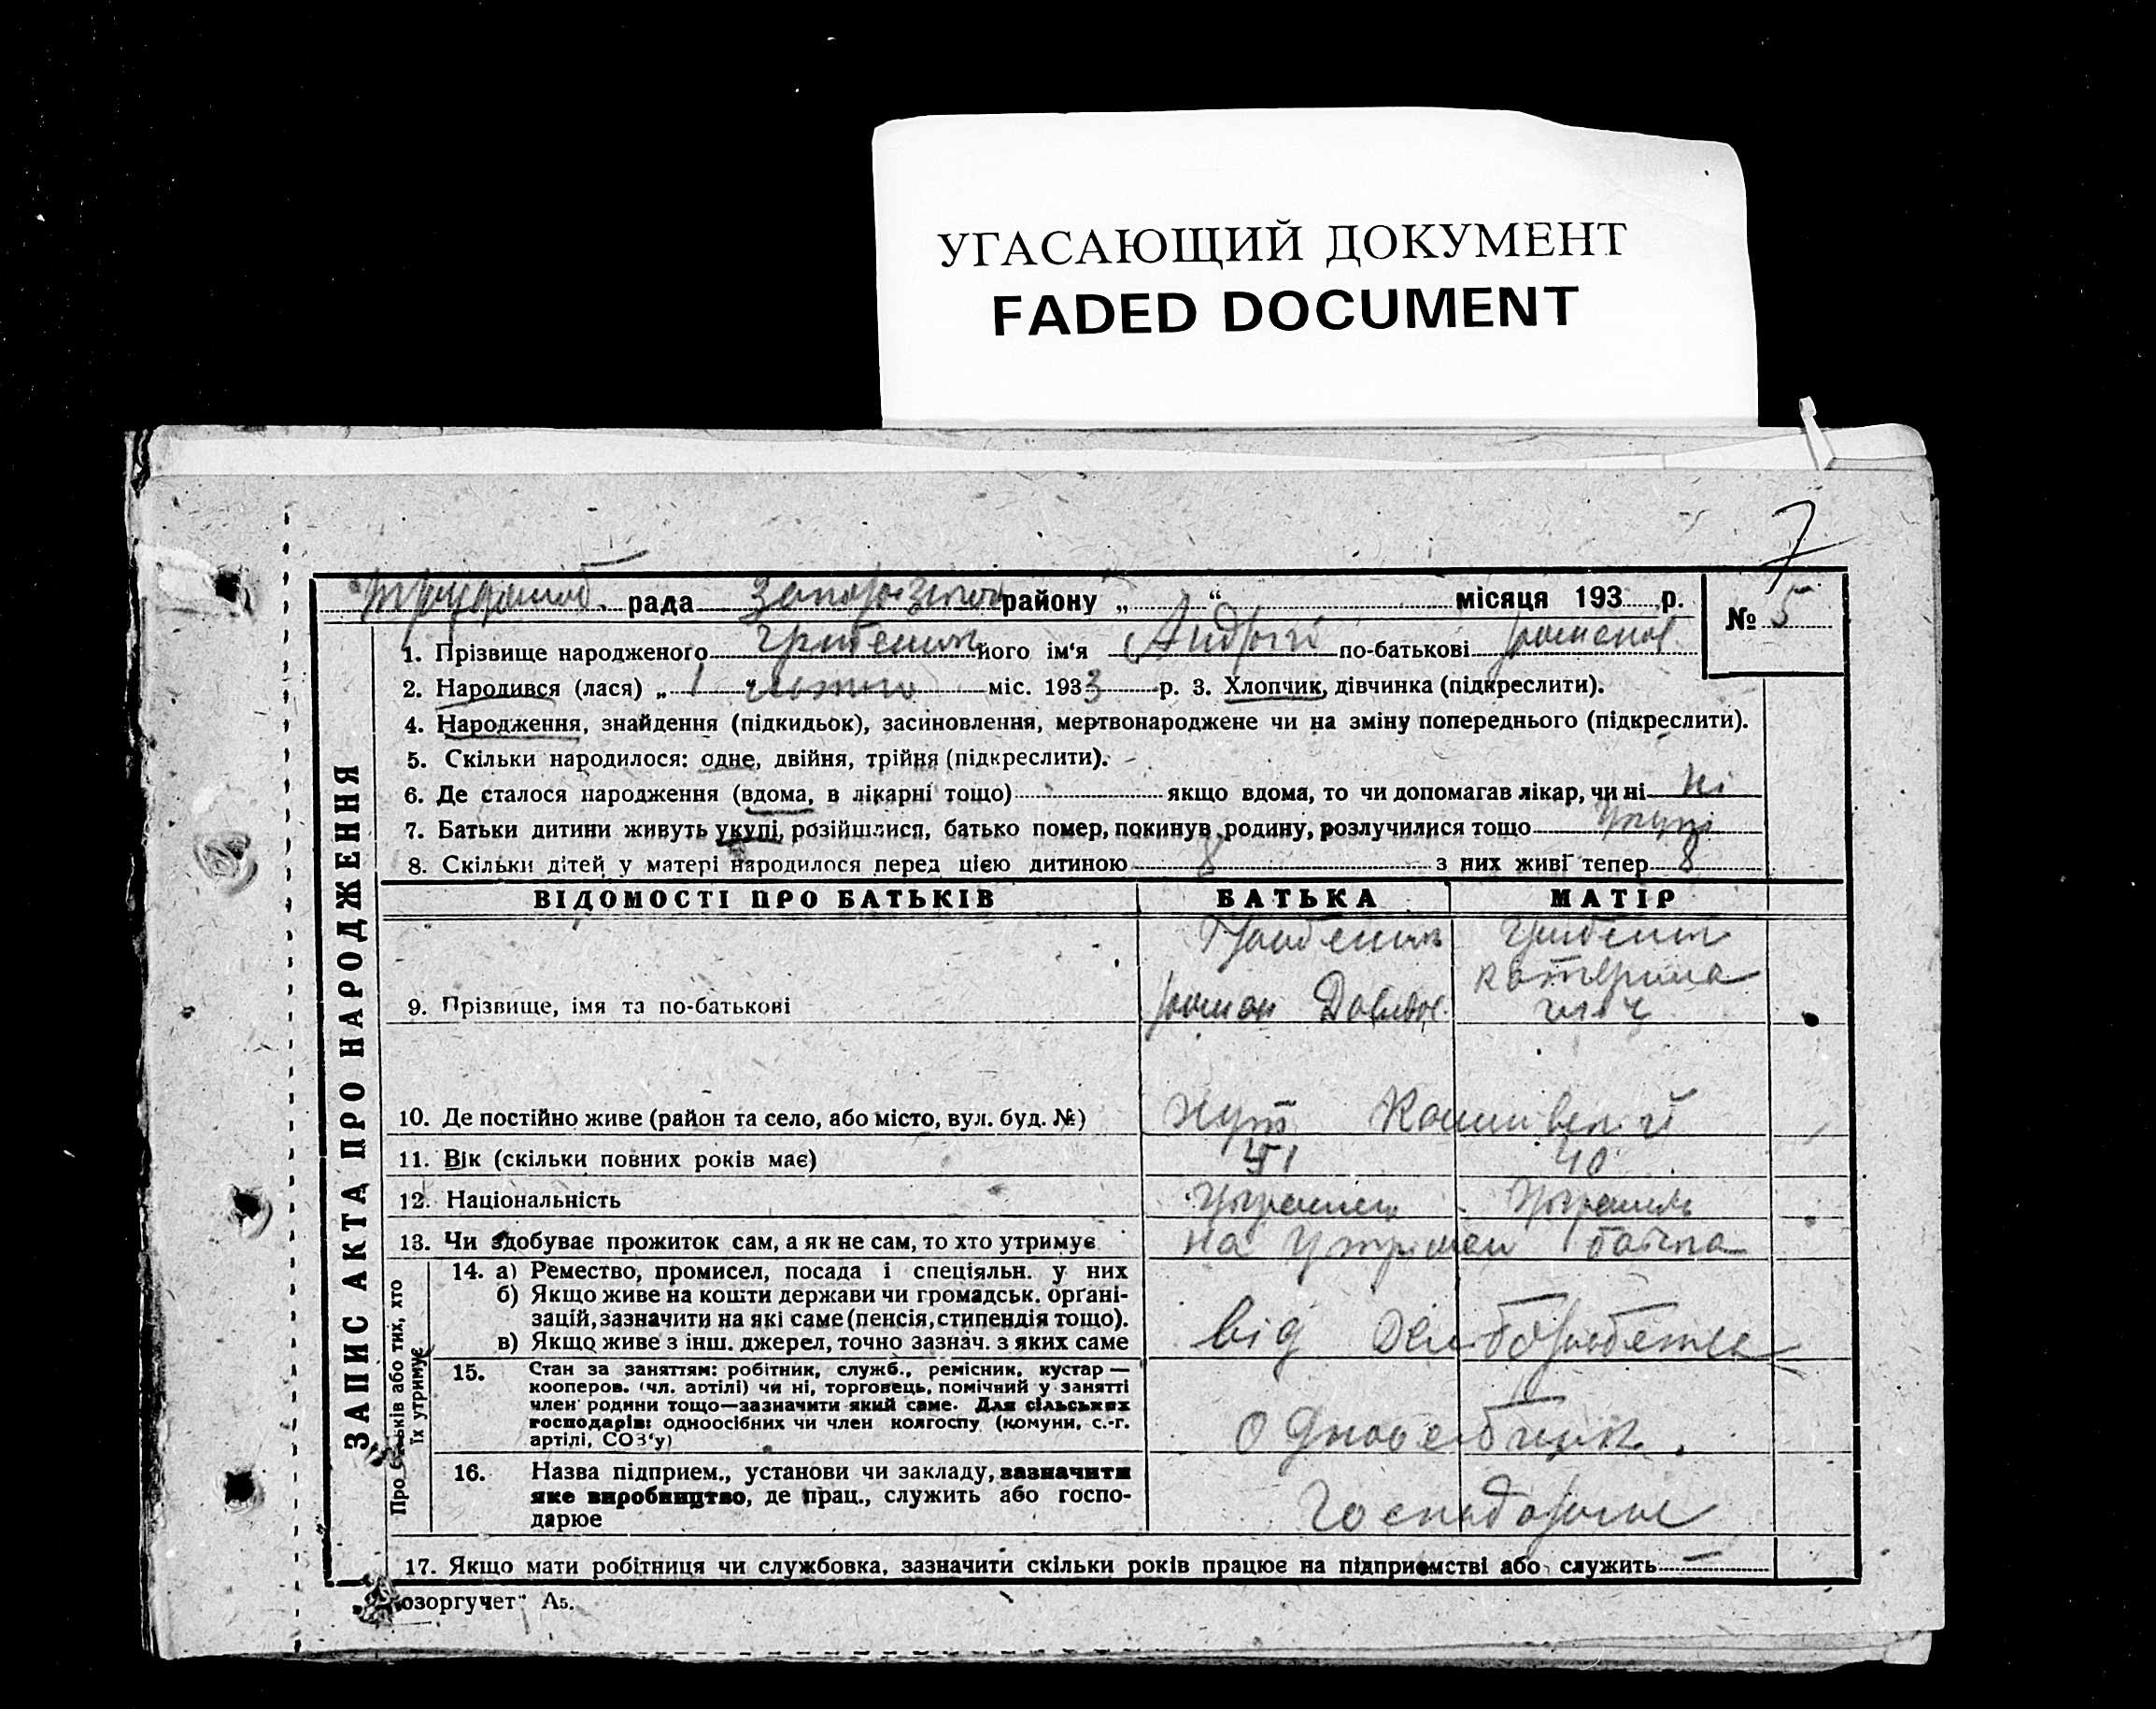 УГАСАЮЩИЙ ДОКУМЕНТ
FADED DOCUMENT
7
рада району „ “ місяця 193 р. № 5
1. Прізвище народженого його ім‘я Андрій по-батькові Романов
2. Народився (лася) „ 1 “ лютого міс. 1933 р. 3. Хлопчик, дівчинка (підкреслити).
4. Народження, знайдення (підкидьок), засиновлення, мертвонароджене чи на зміну попереднього (підкреслити).
5. Скільки народилося: одне, двійня, трійня (підкреслити).
6. Де сталося народження (вдома, в лікарні тощо) якщо вдома, то чи допомагав лікар, чи ні Ні
7. Батьки дитини живуть укупі, розійшлися, батько помер, покинув родину, розлучилися тощо укупі
8. Скільки дітей у матері народилося перед цією дитиною 8 з них живі тепер 8
ЗАПИС АКТА ПРО НАРОДЖЕННЯ
ВІДОМОСТІ ПРО БАТЬКІВ БАТЬКА МАТІР
катерина
9. Прізвище, імя та по-батькові роман Давидов
10. Де постійно живе (район та село, або місто, вул. буд. №) хут
11. Вік (скільки повних років має) 41 40
12. Національність
13. Чи здобуває прожиток сам, а як не сам, то хто утримує на
Про батьків або тих, хто їх утримує
14. а) Ремество, промисел, посада і спеціяльн. у них
б) Якщо живе на кошти держави чи громадськ. органі-
зацій, зазначити на які саме (пенсія, стипендія тощо).
в) Якщо живе з інш. джерел, точно зазнач. з яких саме від
15. Стан за заняттям: робітник, служб., ремісник, кустар —
кооперов. (чл. артілі) чи ні, торговець, помічний у занятті
член родини тощо—зазначити який саме. Для сільських
господарів: одноосібних чи член колгоспу (комуни, с.-г.
артілі, СОЗ‘у) одноосібник.
16. Назва підприєм., установи чи закладу, зазначити
яке виробництво, де прац., служить або госпо-
дарює
17. Якщо мати робітниця чи службовка, зазначити скільки років працює на підприємстві або служить —
озоргучет“ А5.